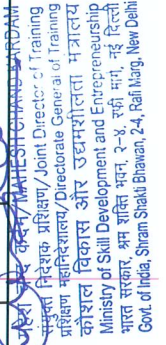 महेश चंद कर्दम/MAHESH CHAND KARDAM
संयुक्त निदेशक प्रशिक्षण/Joint Director of Training
प्रशिक्षण महानिदेशालय/Directorate General of Training
कौशल विकास और उद्यमशीलता मंत्रालय
Ministry of Skill Development and Entrepreneurship
भारत सरकार, श्रम शक्ति भवन, २-४, रफी मार्ग, नई दिल्ली
Govt. of India, Shram Shakti Bhawan, 2-4, Rafi Marg, New Delhi